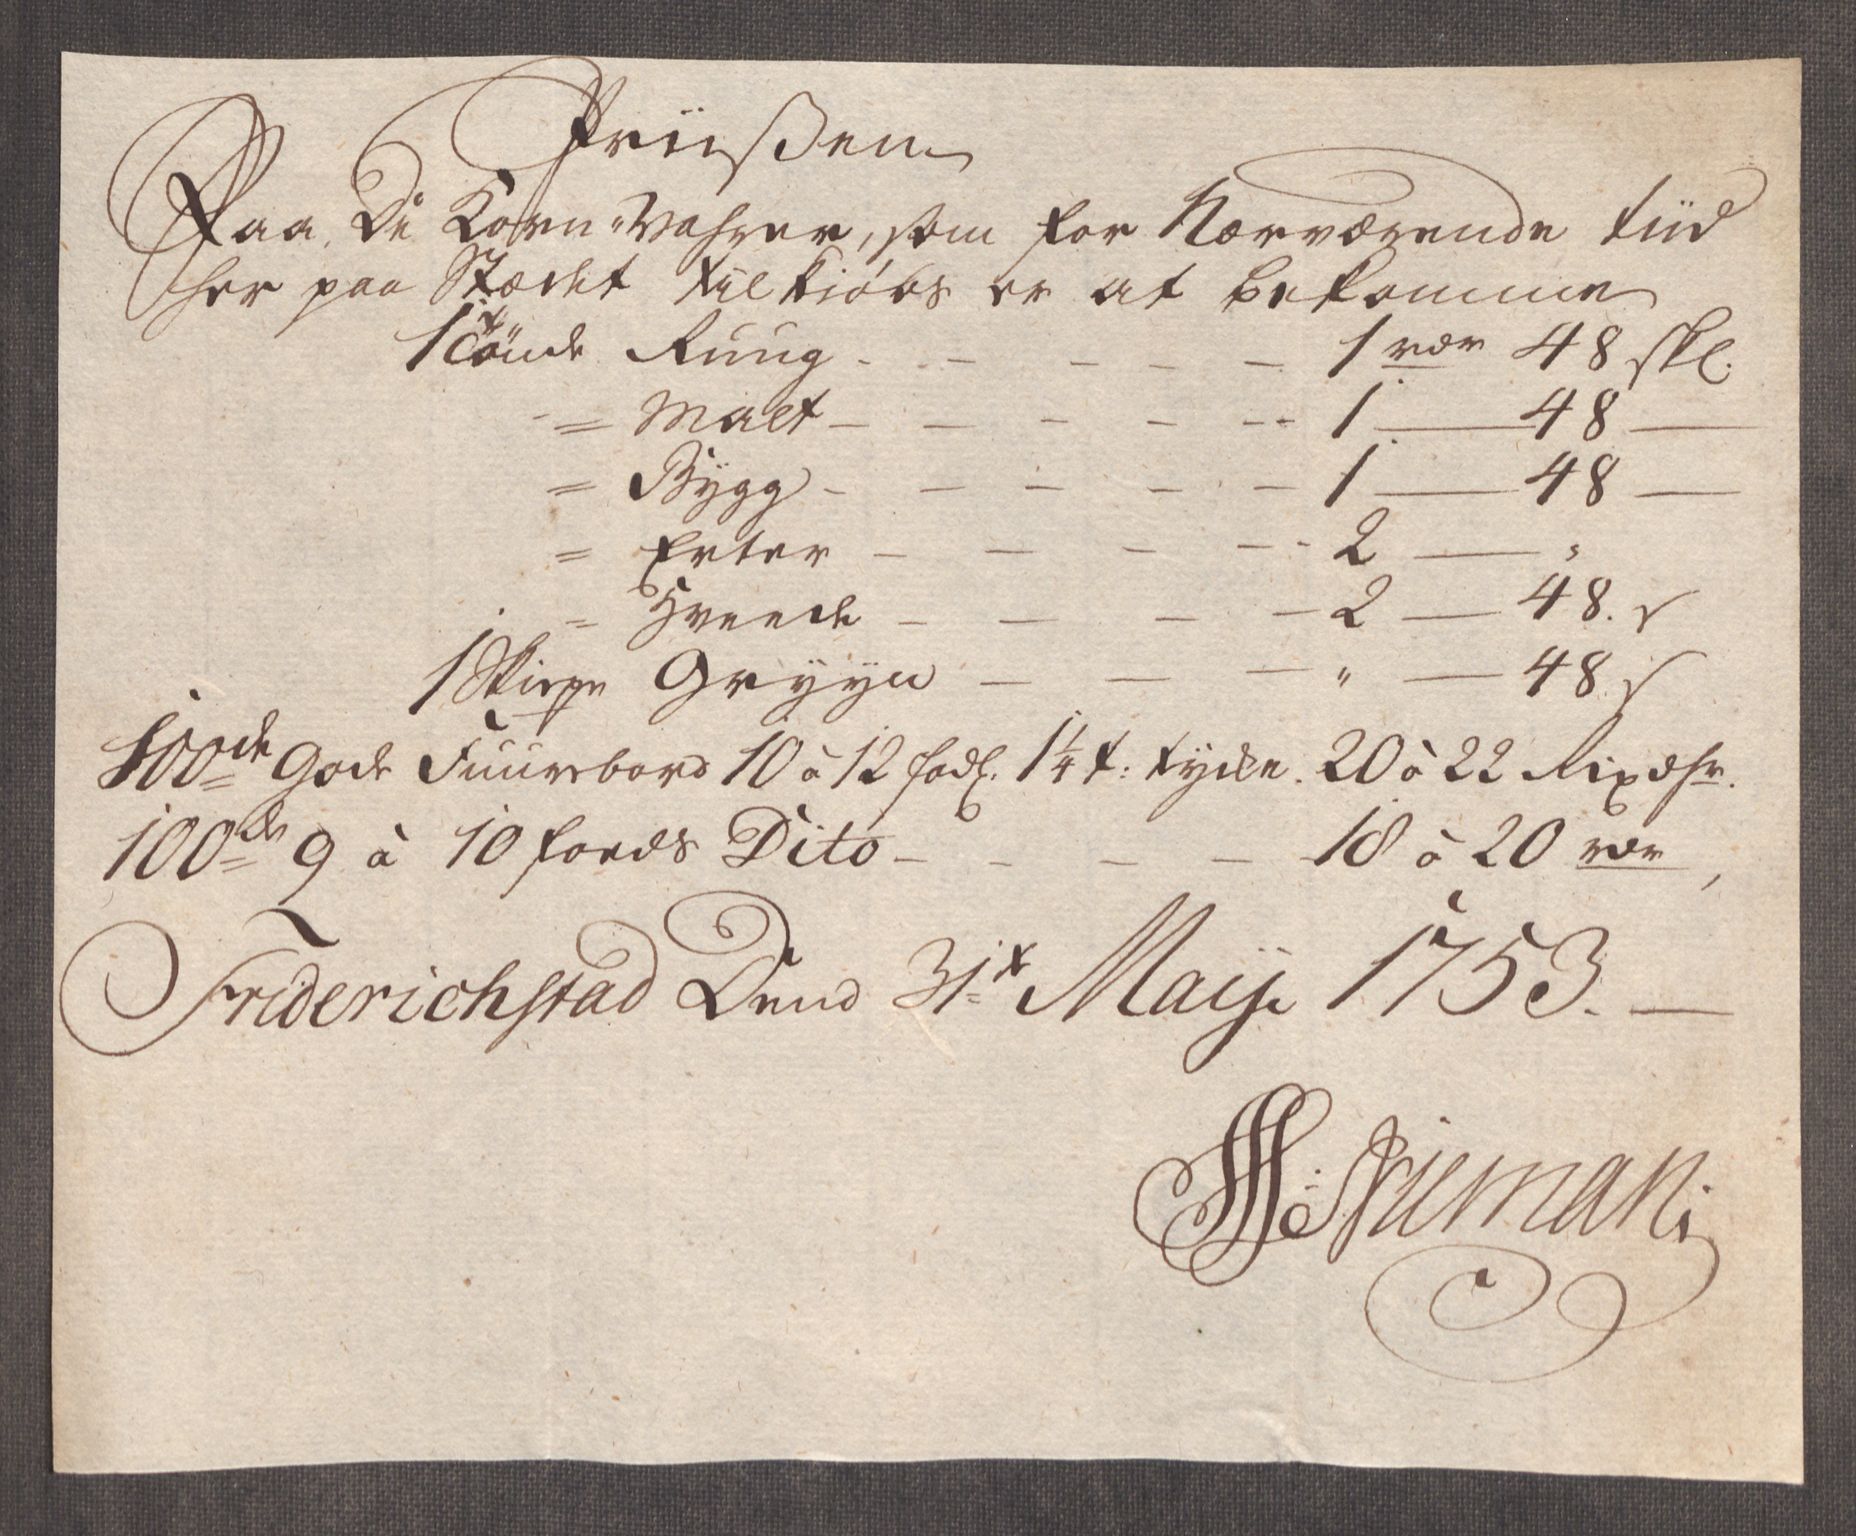 Priisßen
Paa De Korn-Vahrer, som for Nærværende tiid
her paa Stædet til kiøbs er at bekomme
1 Tönde Ruug - - - - - 1 rdr 48 skl.
= Malt - - - - - 1 — 48 —
= Bygg - - - - - 1 — 48 —
= Erter - - - - - 2 — "
= Hveede - - - - - 2 — 48. s
1 Skiepe Gryyn - - - " — 48. s
100de Gode Fuurebord 10 à 12 fods. 1¼ t: tycke. 20 à 22 Rixdhr.
100de 9 à 10 foeds Dito - - - - - 18 à 20 rdr,
Friderichstad Dend 31te Maij 1753. —